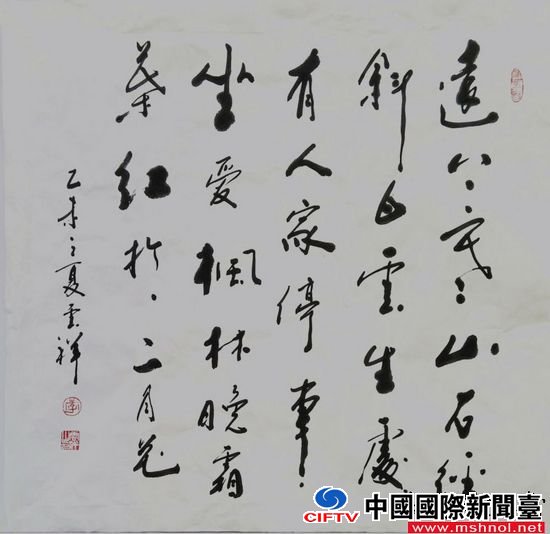 遠上寒山石徑
斜白雲生處
有人家停車
坐愛楓林晚霜
葉紅於二月花
乙未之夏雲祥
CIFTV
中國國際新聞臺
www.mshnol.net